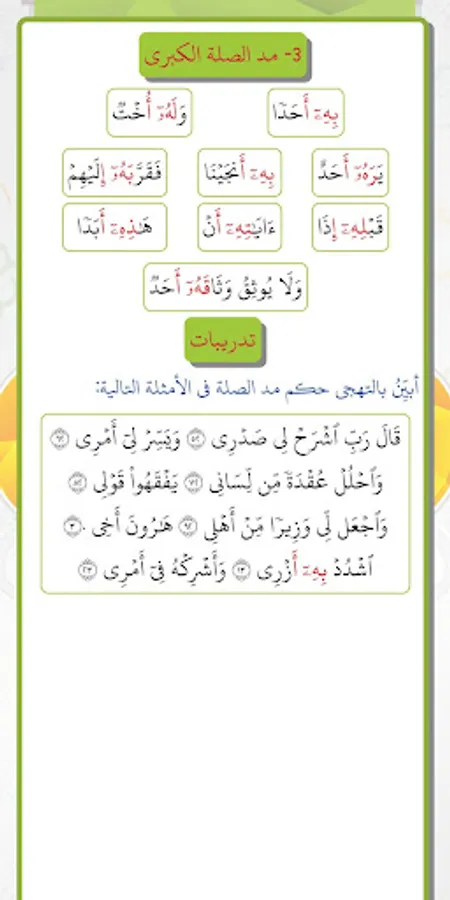 3- مد الصلة الكبرى
بِهِۦٓ أَحَدٗا وَلَهُۥٓ أُخۡتٞ
يَرَهُۥٓ أَحَدٌ بِهِۦٓ أَنجَيۡنَا فَقَرَّبَهُۥٓ إِلَيۡهِمۡ
قَبۡلِهِۦٓ إِذَا ءَايَٰتِهِۦٓ أَنۡ هَٰذِهِۦٓ أَبَدٗا
وَلَا يُوثِقُ وَثَاقَهُۥٓ أَحَدٞ
تدريبات
أبيِّنُ بالتهجى حكم مد الصلة فى الأمثلة التالية:
قَالَ رَبِّ ٱشۡرَحۡ لِي صَدۡرِي ۝ وَيَسِّرۡ لِيٓ أَمۡرِي ۝
وَٱحۡلُلۡ عُقۡدَةٗ مِّن لِّسَانِي ۝ يَفۡقَهُواْ قَوۡلِي ۝
وَٱجۡعَل لِّي وَزِيرٗا مِّنۡ أَهۡلِي ۝ هَٰرُونَ أَخِي ۝
ٱشۡدُدۡ بِهِۦٓ أَزۡرِي ۝ وَأَشۡرِكۡهُ فِيٓ أَمۡرِي ۝